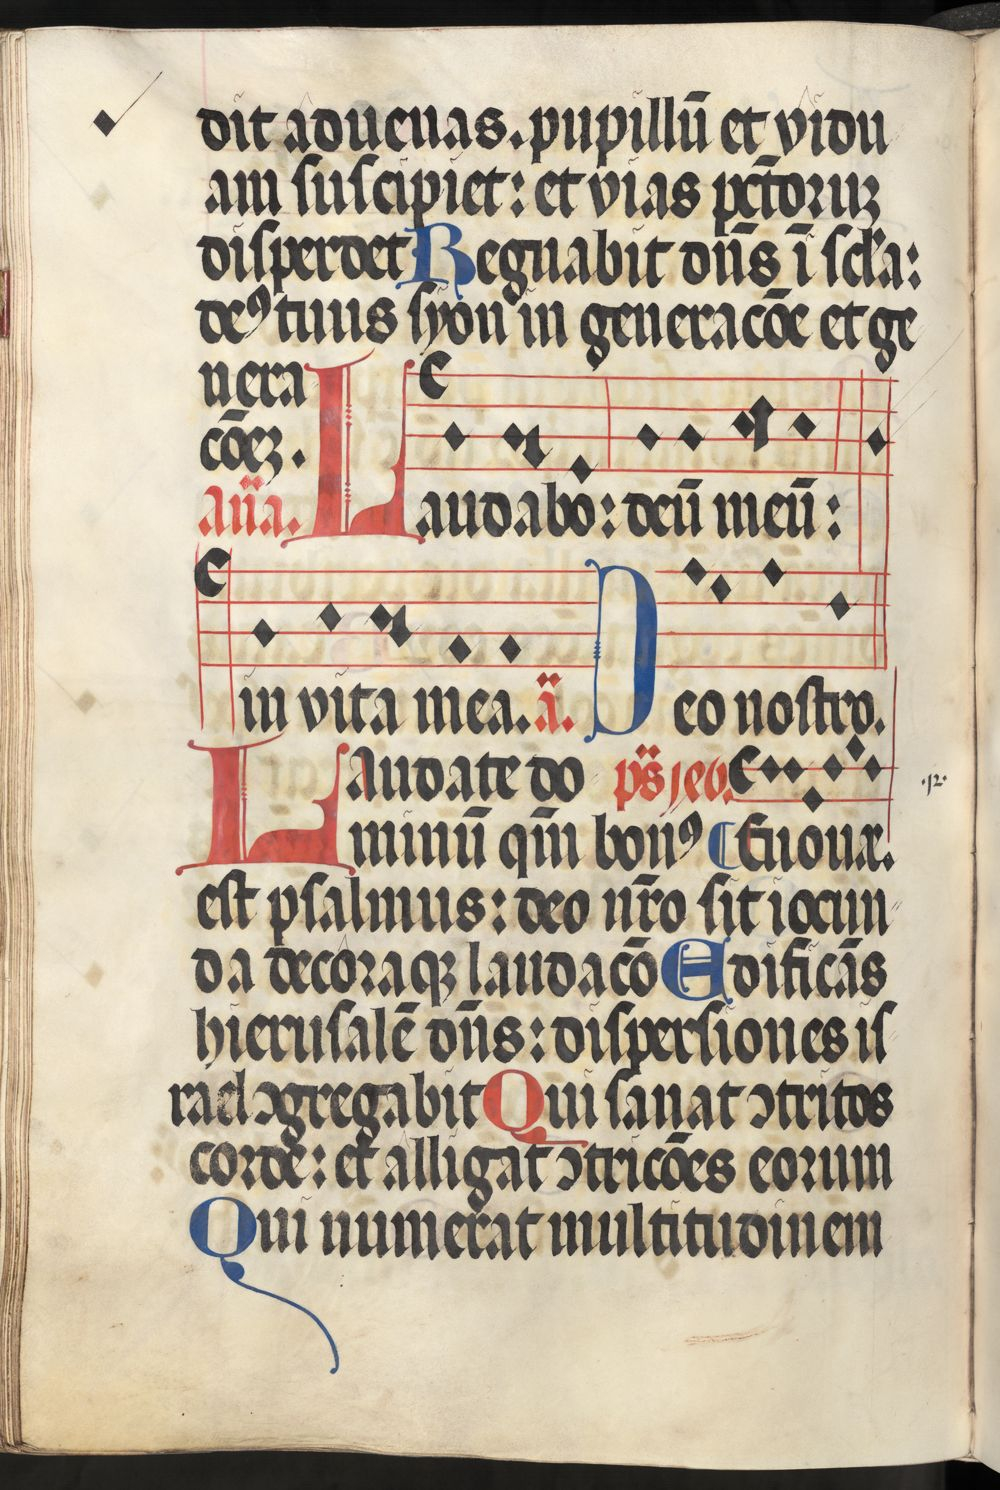 dit aduenas. pupillū et vidu
am suscipiet: et vias pcc̄toruꝫ
disperdet Regnabit dn̄s ī scl̓a:
deꝰ tuus syon in generacōe et ge
nera
cōeꝫ.
an̄a. Laudabo: deū meū:
in vita mea. a̅. Deo nostro.
Laudate do ps̄ jeo.
minū qm̄ bonꝰ Euouae. ·12·
est psalmus: deo nr̄o sit iocun
da decoraqꝫ laudacō Edificās
hierusalē dn̄s: dispersiones is
rael ↄgregabit Qui sanat ↄtritos
corde: et alligat ↄtricōes eorum
Qui numerat multitudinem